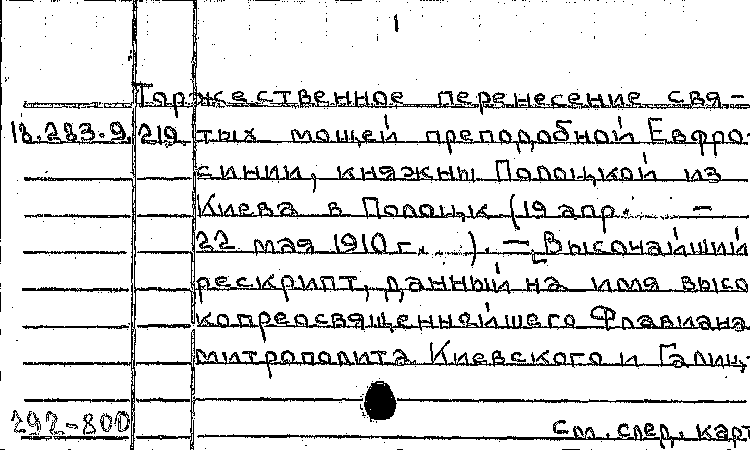 1
Торжественное перенесение свя-
18.283.9.219. тых мощей преподобной Евфро-
синии, княжны Полоцкой из
Киева в Полоцк (19 апр. —
22 мая 1910 г. ). — Высочайший
рескрипт, данный на имя высо
копреосвященнейшего Флавиана
митрополита Киевского и Галиц-
292-800
см. след. карт